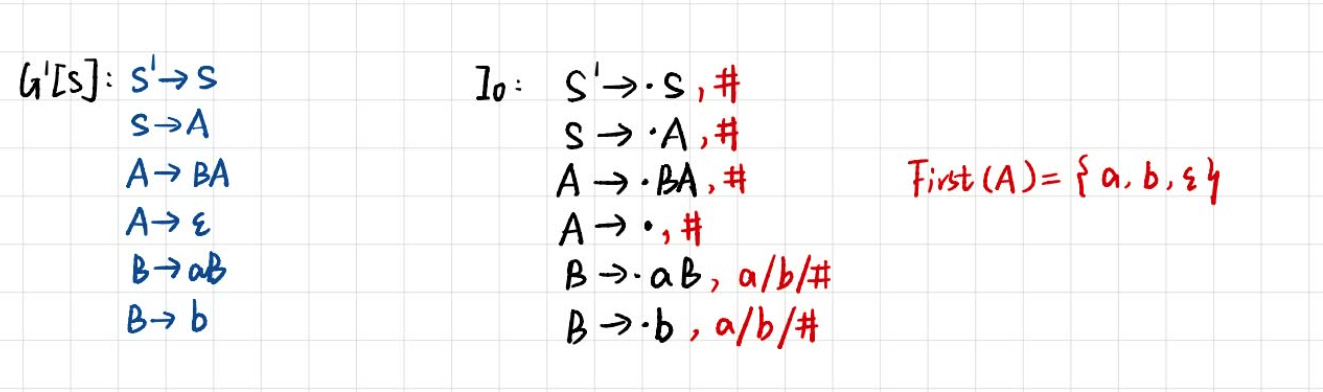 G'[S]: S'→S
S→A
A→BA
A→ε
B→aB
B→b
I₀: S'→·S,#
S→·A,#
A→·BA,#
A→·,#
B→·aB, a/b/#
B→·b, a/b/#
First(A)={a,b,ε}